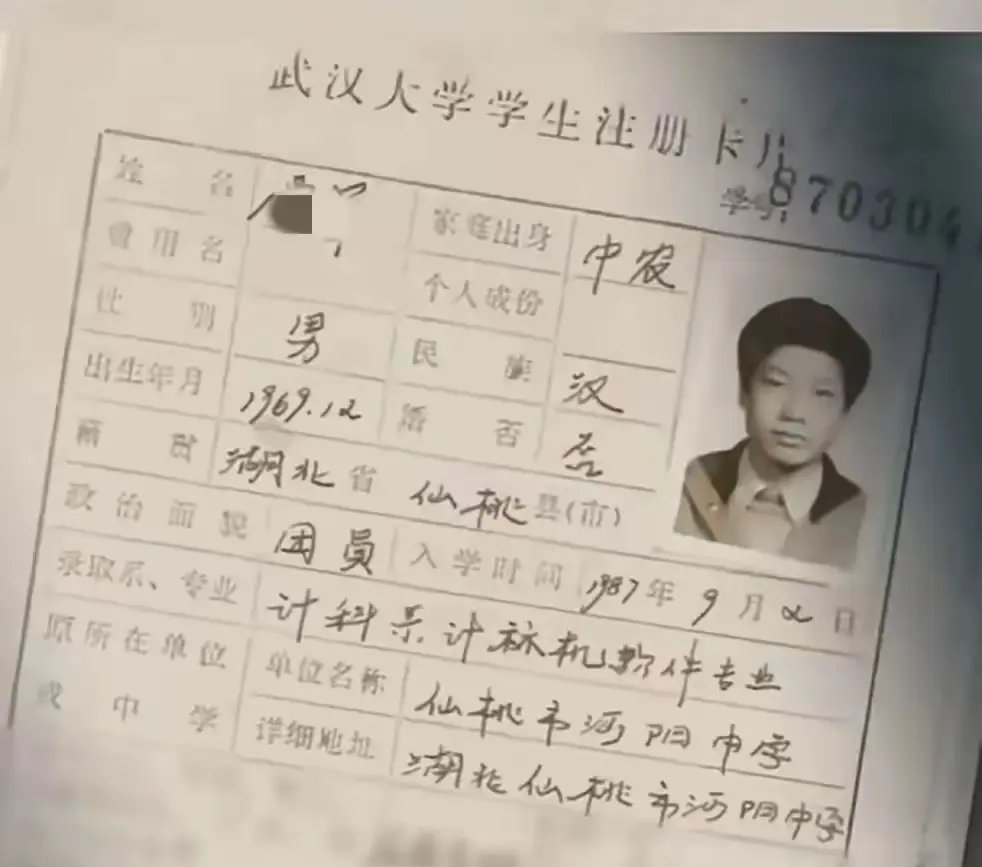 武汉大学学生注册卡片
学号870304
姓名 家庭出身 中农
曾用名 个人成份
性别 男 民族 汉
出生年月 1969.12 婚否 否
籍贯 湖北省 仙桃县(市)
政治面貌 团员 入学时间 1987年9月2日
录取系、专业 计科系计标机软件专业
原所在单位或中学 单位名称 仙桃市沔阳中学
详细地址 湖北仙桃市沔阳中学